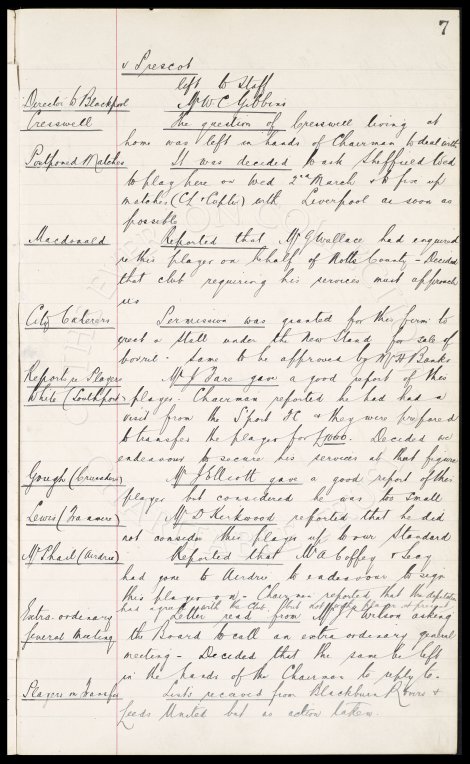 7
v Prescot
left to Staff
Director to Blackpool Mr W C Gibbins
Cresswell The question of Cresswell living at
home was left in hands of Chairman to deal with
Postponed Matches It was decided to ask Sheffield Wed
to play here on Wed 2nd March & to fix up
matches with Liverpool as soon as
possible
Macdonald Reported that Mr G Wallace had enquired
re this player on behalf of Notts County - Decided
that club requiring his services must approach
us
City Caterers Permission was granted for this firm to
erect a stall under the New Stand for sale of
bovril. Same to be approved by W H Banks
Reports re Players Mr J Fare gave a good report of this
White (Southport) player. Chairman reported he had had a
visit from the Sport FC & they were prepared
to transfer the player for £1000. Decided we
endeavour to secure his services at that figure
Gough (Crusaders) Mr J Elliott gave a good report of this
player but considered he was too small
Lewis (Tranmere) Mr D Kirkwood reported that he did
not consider this player up to our Standard
McPhail (Airdrie) Reported that Mr A Coffey &
had gone to Airdrie to endeavour to sign
this player on - Chairman reported that the deputation
had agreed with the Club, but not
Extra ordinary Letter read from Mr Wilson asking
General Meeting the Board to call an extra ordinary general
meeting - Decided that the same be left
in the hands of the Chairman to reply to.
Players on Transfer Lists received from Blackburn Rovers &
Leeds United but no action taken.